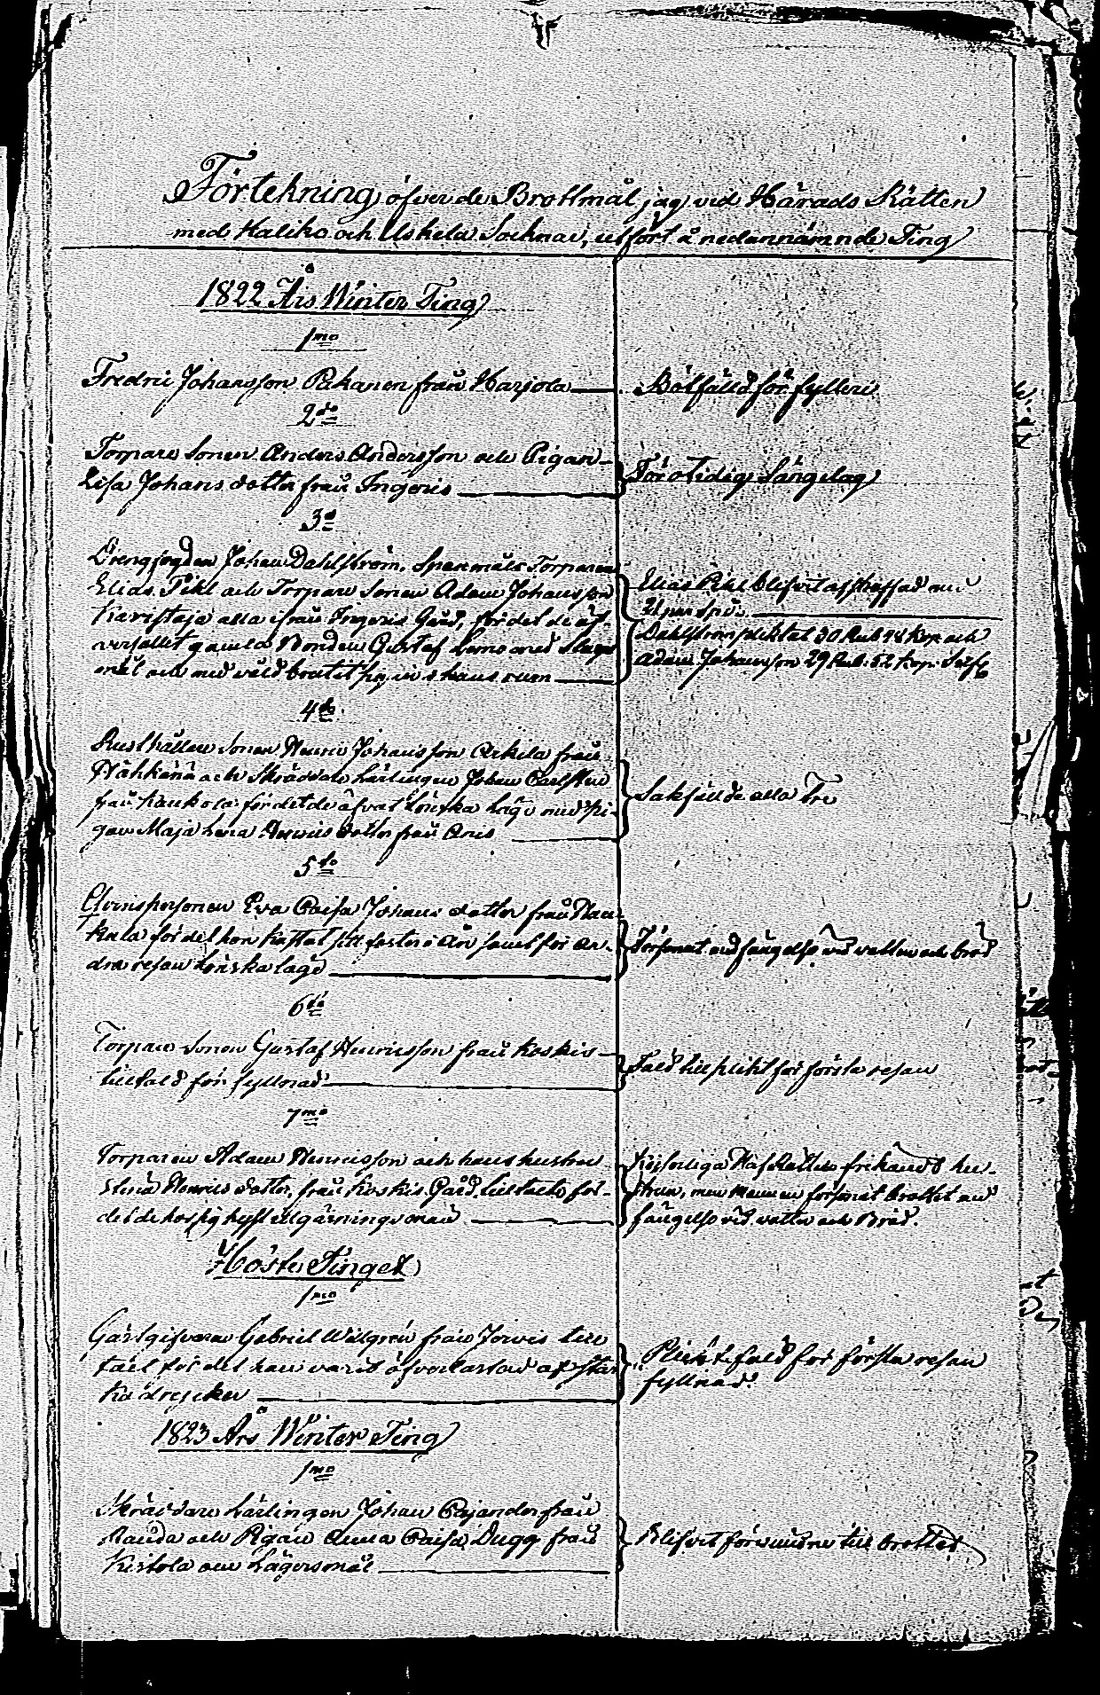 Förtekning öfver de Brottmål jag vid Härads Rätten
med Haliko och Uskela Socknar, utfört å nedannämnde Ting
1822 Års Winter Ting
1mo
Fredric Johansson Pikanen från Harjola Botfälld för fylleri
2do
Torpare Sonen Anders Andersson och Pigan
Lisa Johans dotter från Ingeris
För otidig Sängelag
3o
Drengen Johan Dahlström, Torparen
Elias Pihl och Torpare Sonen Adam Johansson
alla ifrån Gård, för det de öf-
verfallit gamla Bonden Gustaf med Slags
mål och med våld brutit sig in i hans rum
Elias Pihl blifvit afstraffad med
21 par Spö.
Dahlström pliktat 30 Rub. 48 Kop. och
Adam Johansson 29 Rub. 52 Kop. Silf
4to
Rusthållare Sonen Henric Johansson Arkela från
och Skräddare Lärlingen Johan Carlsten
från Kaukola för det de äfvat Lönska läge med Pi-
gan Maja Lena Henrics dotter från
Sakfällde alla tre
5to
Qvinspersonen Eva Caisa Johans dotter från
kula för det hon kastat sitt foster å samt för an-
dra resan Lönska läge
Försonat med fängelse vid vatten och bröd
6to
Torpare Sonen Gustaf Henricsson från Koskis
tilltald för fyllnad
Fäld till plikt för första resan
7mo
Torparen Adam Henricsson och hans hustru
Stina Henrics dotter, från Koskis Gård tilltalte för
det de hyst ogärningsman
Kejserliga Hof Rätten frikände hu-
strun, men mannen försonat brottet med
fängelse vid vatten och Bröd.
Höste Tinget
1mo
Gästgifvaren Gabriel Wilgrén från Jorvis till
talt för det han varit öfverlastad af star
ka drycker
Plikt fäld för första resan
fyllnad.
1823 Års Winter Ting
1mo
Skräddare Lärlingen Johan Cajander från
och Pigan Anna Caisa Dugg från
Kistola om Lägersmål
Blifvit förvunne till brottet